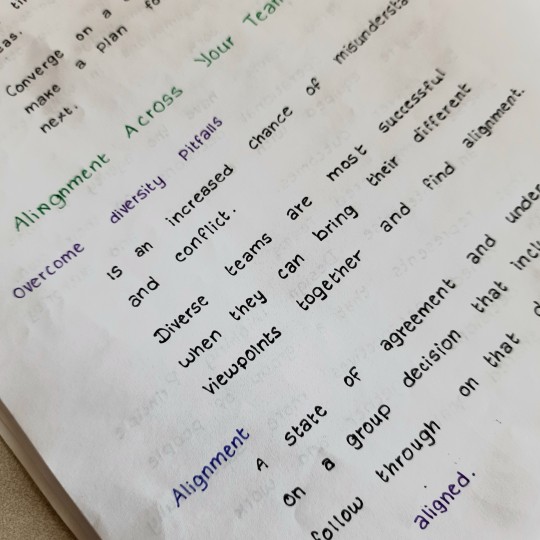 eas.
Converge on a
make a plan fo
next.
Alingnment Across Your Team
Overcome diversity pitfalls
is an increased chance of misundersta
and conflict.
Diverse teams are most successful
when they can bring their different
viewpoints together and find alignment.
Alignment
A state of agreement and under
on a group decision that inclu
follow through on that d
aligned.